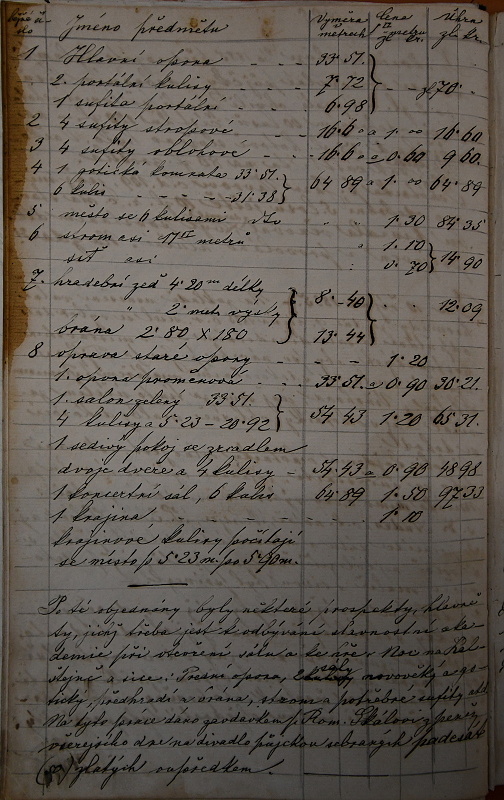 Jméno předmětu Výměra metrech Cena □ metru zl. kr. Úhrn zl. kr.
1 Hlavní opona - - 33·51.
2. portální kulisy - 7·72 - - zl 70·-
1 sufita portální - - 6·98
2 4 sufity stropové - - 16·60 a 1·00 16·60
3 4 sufity oblohové - - 16·60 a 0·60 9 60.
4 1 gotická komnata 33·51.
6 kulis - - - 31·38 64 89 a 1·00 64·89
5 město se 6 kulisami dto " " 1·30 84·35
6 strom asi 17 □ metrů " 1·10
síť asi 0·70 14·90
7. hradební zeď 4·20 m délky 8·-40 12·09
" 2· met. výšky
brána 2·80 X 180 13·44
8 oprava staré opony - - - - 1·20
1. opona proměnová - - 33·51. a 0·90 30·21.
1. salon zelený 33·51.
4 kulisy a 5·23 - 20·92 54·43 1·20 65 31.
1 šedivý pokoj se zrcadlem
dvoje dveře a 4 kulisy - 54·43 a 0·90 48 98
1 koncertní sál, 6 kulis 64·89 1·50 97 33
1 krajina - - - - - - - 1·10
krajinové kulisy počítají
se místo p 5·23 m. po 5·90 m.
Po té objednány byly některé prospekty, hlavně
ty, jichž třeba jest k odbývání slavnostní aka-
demie při otevření sálu a ke hře: Noc na Karl-
štejně a sice: Přesně opona, sály novověký a go-
tický, předhradí a brána, strom a potřebné sufity atd.
Na tyto práce dáno závdavkem p. Rom. Škalovi z peněz
včerejšího dne na divadlo půjčkou sebraných padesát
(50) zlatých ku předkem.